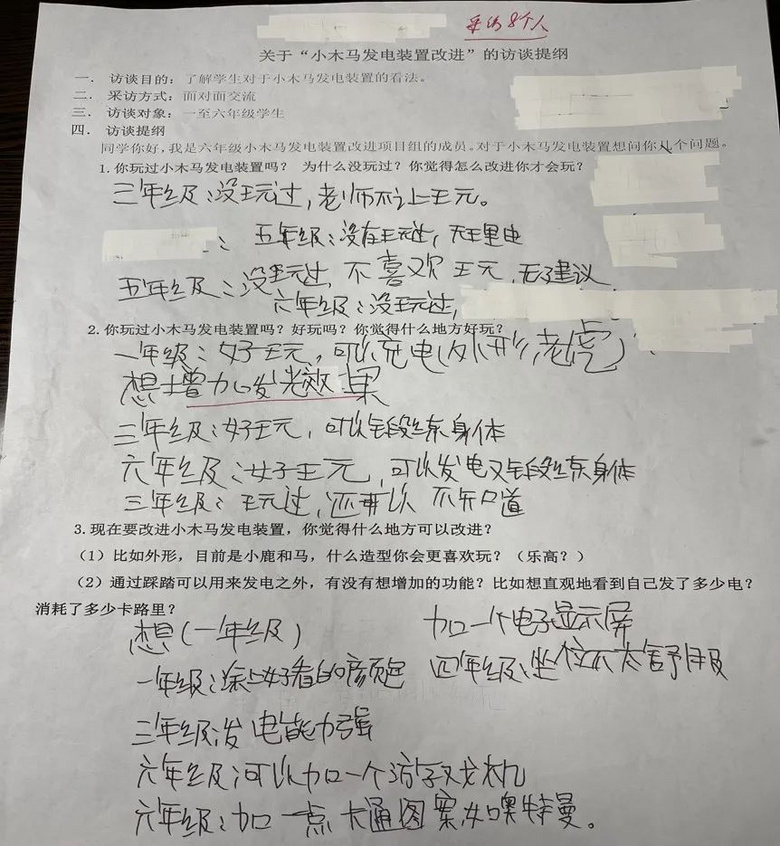 采访8个人
关于“小木马发电装置改进”的访谈提纲
一. 访谈目的：了解学生对于小木马发电装置的看法。
二. 采访方式：面对面交流
三. 访谈对象：一至六年级学生
四. 访谈提纲
同学你好，我是六年级小木马发电装置改进项目组的成员。对于小木马发电装置想问你几个问题。
1.你玩过小木马发电装置吗？ 为什么没玩过？你觉得怎么改进你才会玩？
三年级：没玩过，老师不让玩。
： 五年级：没在玩过，天黑
五年级：没玩过，不喜欢玩，无建议
六年级：没玩过，
2.你玩过小木马发电装置吗？好玩吗？你觉得什么地方好玩？
一年级：好玩，可以充电（外形，老虎）
想增加发光效果
三年级：好玩，可以锻练身体
六年级：好玩，可以发电又锻练身体
三年级：玩过，还可以 不知道
3.现在要改进小木马发电装置，你觉得什么地方可以改进？
（1）比如外形，目前是小鹿和马，什么造型你会更喜欢玩？（乐高？）
（2）通过踩踏可以用来发电之外，有没有想增加的功能？比如想直观地看到自己发了多少电？
消耗了多少卡路里？
想（一年级） 加一个电子显示屏
一年级：涂上好看的颜色 四年级：坐位不太舒服
三年级：发电能力强
六年级：可以加一个游戏机
六年级：加一点卡通图案，如奥特曼。